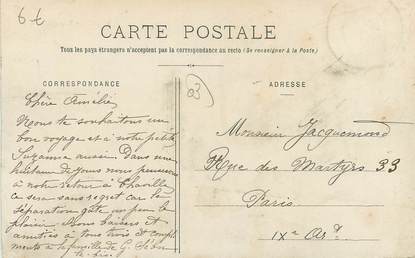 6€
CARTE POSTALE
Tous les pays étrangers n'acceptent pas la correspondance au recto (Se renseigner à la Poste)
CORRESPONDANCE
Chère Amélie
Nous te souhaitons un
bon voyage et à notre petite
Suzanne aussi. Dans une
huitaine de jours nous penserons
à notre retour à Chaville
ce sera sans regret car la
séparation gâte un peu le
plaisir. Bons baisers et
amitiés à vous trois et compli
ments à la famille de G.
03
ADRESSE
Monsieur Jacquemond
Rue des Martyrs 33
Paris
IXe Ar.t